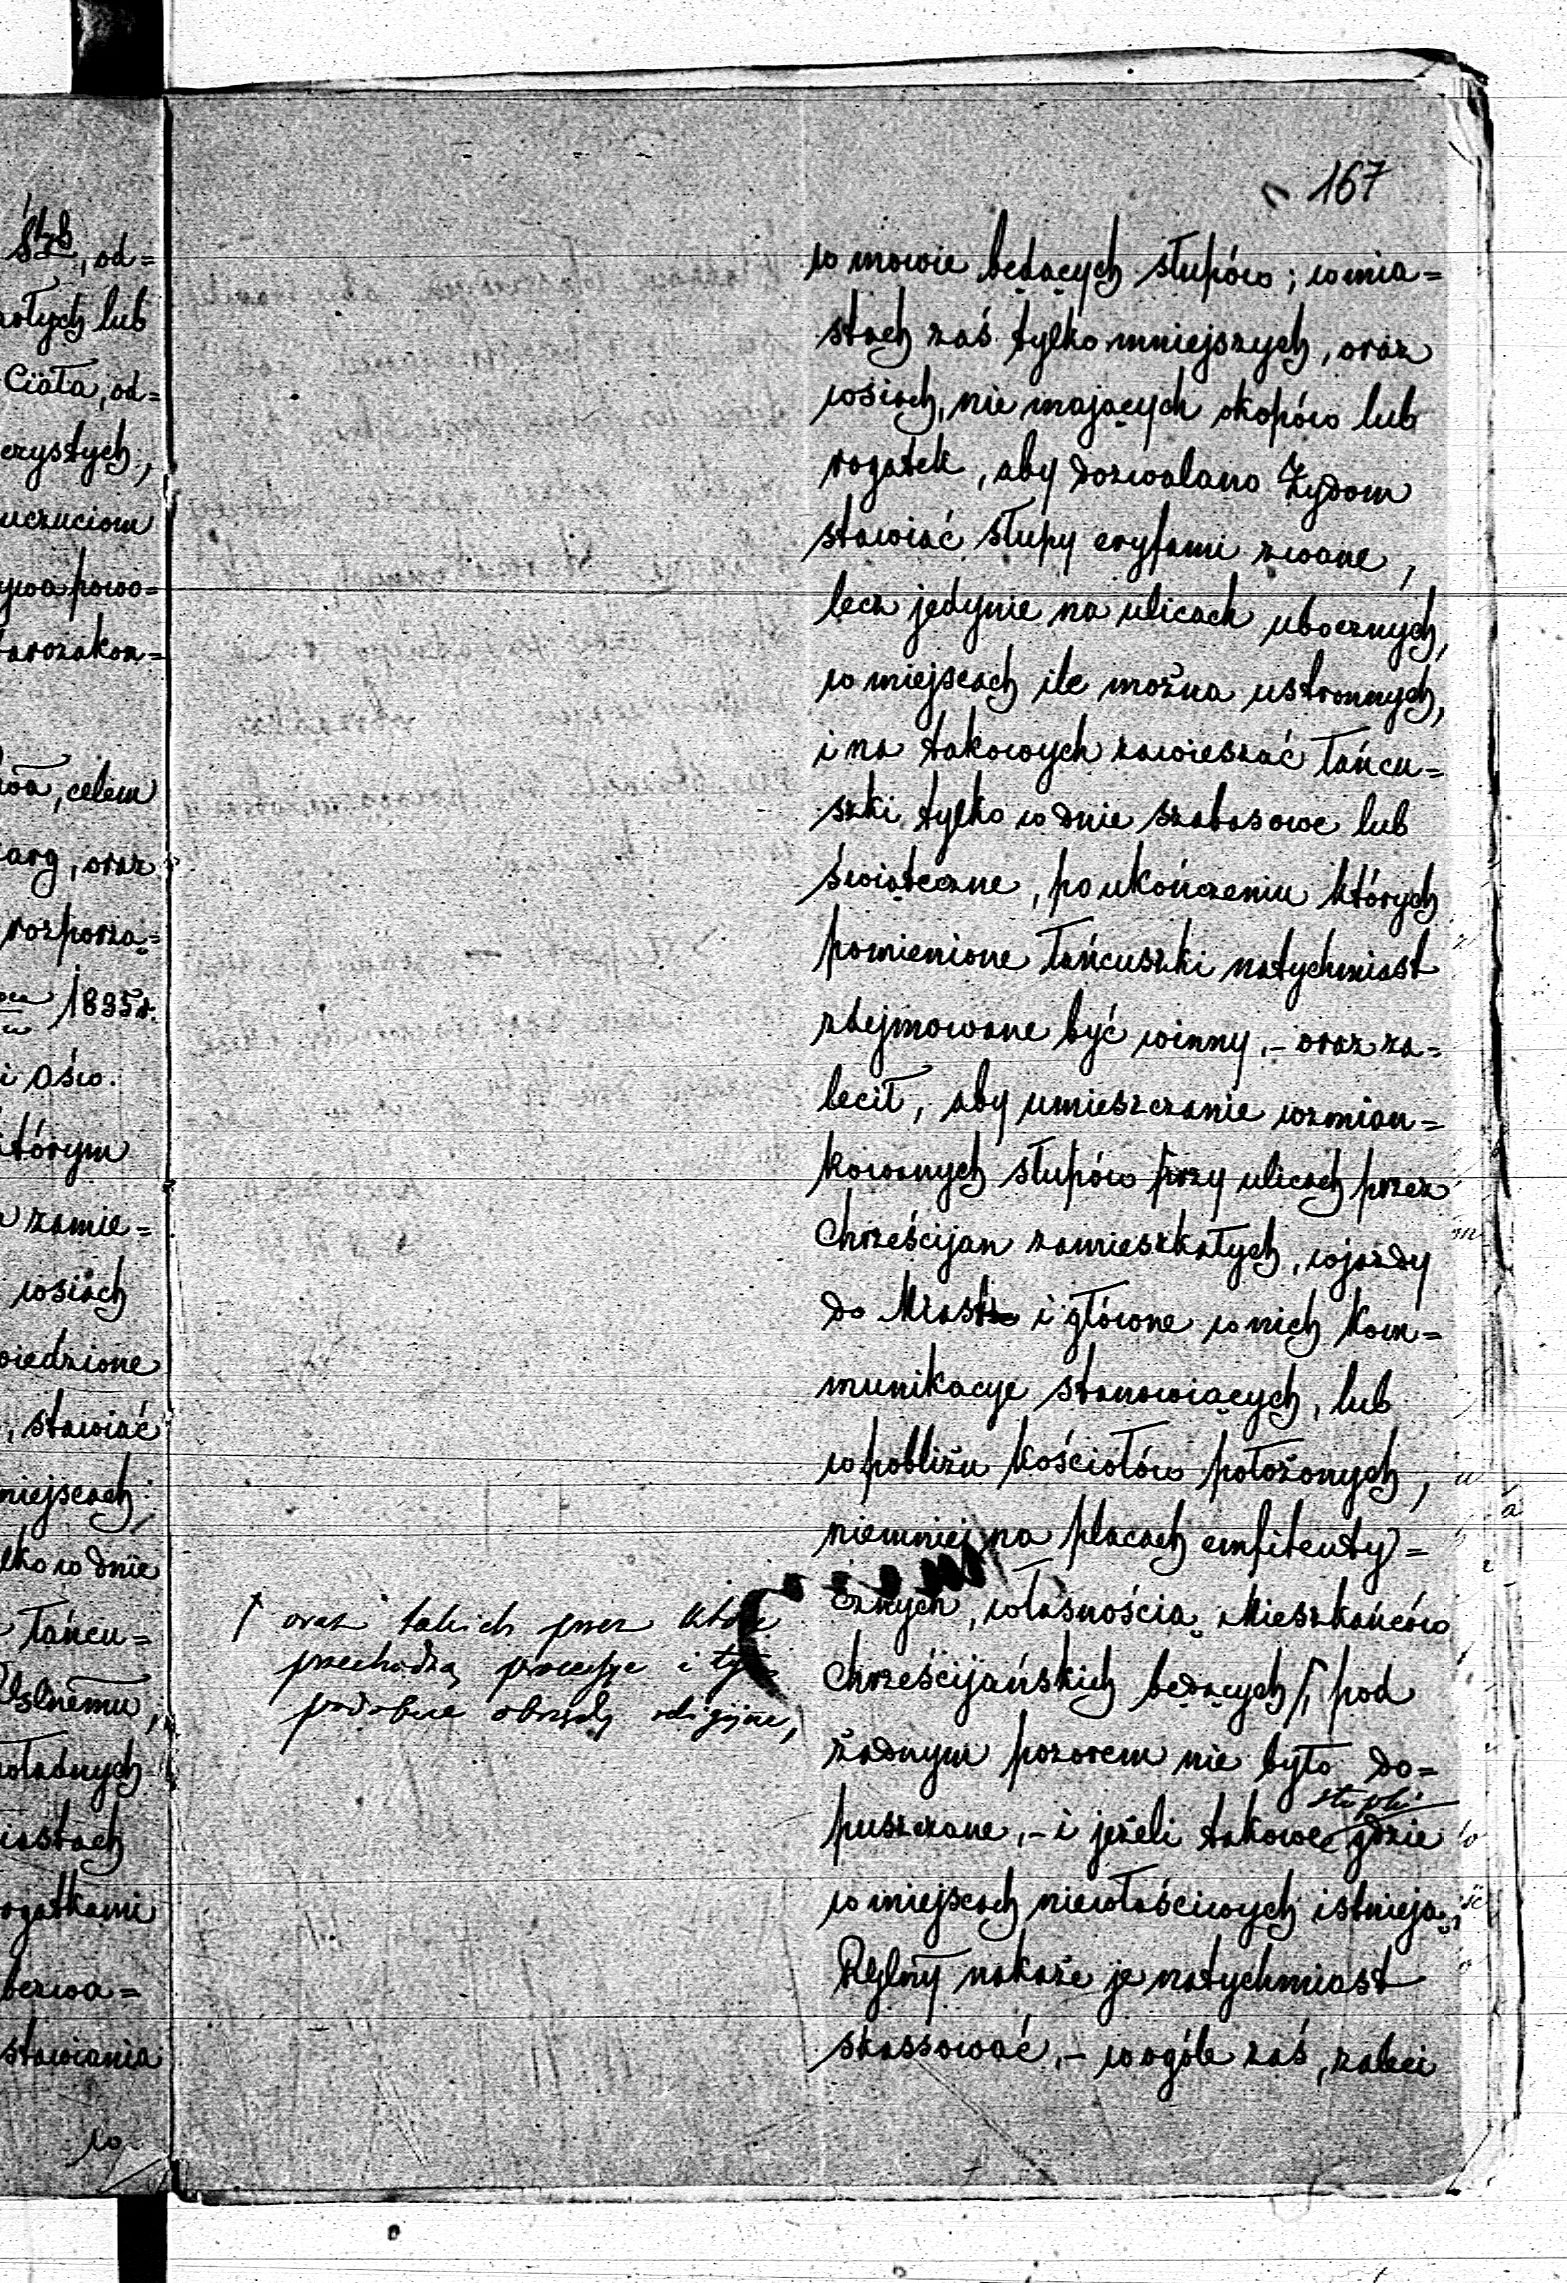 167
Śtẖ, od=
rołych lub
Ciała, od=
czystych,
uczuciom
ywa powo=
arozakon=
wa, celem
arg, oraz
rozporzą=
1835 r.
i Ośw.
którym
zamie=
wsiach
wiedzione
, stawiać
miejscach
lko w dnie
łańcu=
Cylnemu,
władnych
iastach
ogatkami
bezwa=
stawiania
w
w mowie będących słupów; w mia=
stach zaś tylko mniejszych, oraz
wsiach, nie mających okopów lub
rogatek, aby dozwalano Żydom
stawiać słupy eryfami zwane,
lecz jedynie na ulicach ubocznych,
w miejscach ile można ustronnych,
i na takowych zawieszać łańcu=
szki tylko w dnie szabasowe lub
świąteczne, po ukończeniu których
pomienione łańcuszki natychmiast
zdejmowane być winny, – oraz za=
lecił, aby umieszczanie wzmian=
kowanych słupów przy ulicach przez
Chrześcijan zamieszkałych, wjazdy
do Miast i główne w nich kom=
munikacye stanowiących, lub
w pobliżu kościołów położonych,
niemniej na placach emfiteuty=
cznych, własnością Mieszkańców
Chrześcijańskich będących /, pod
żadnym pozorem nie było do=
puszczane, – i jeżeli takowe słupki gdzie
w miejscach niewłaściwych istnieją,
Rząlny nakaże je natychmiast
skassować, – w ogóle zaś, zaleci
/ oraz takich przez które
przechodzą processye i tym
podobne obrzędy religijne,